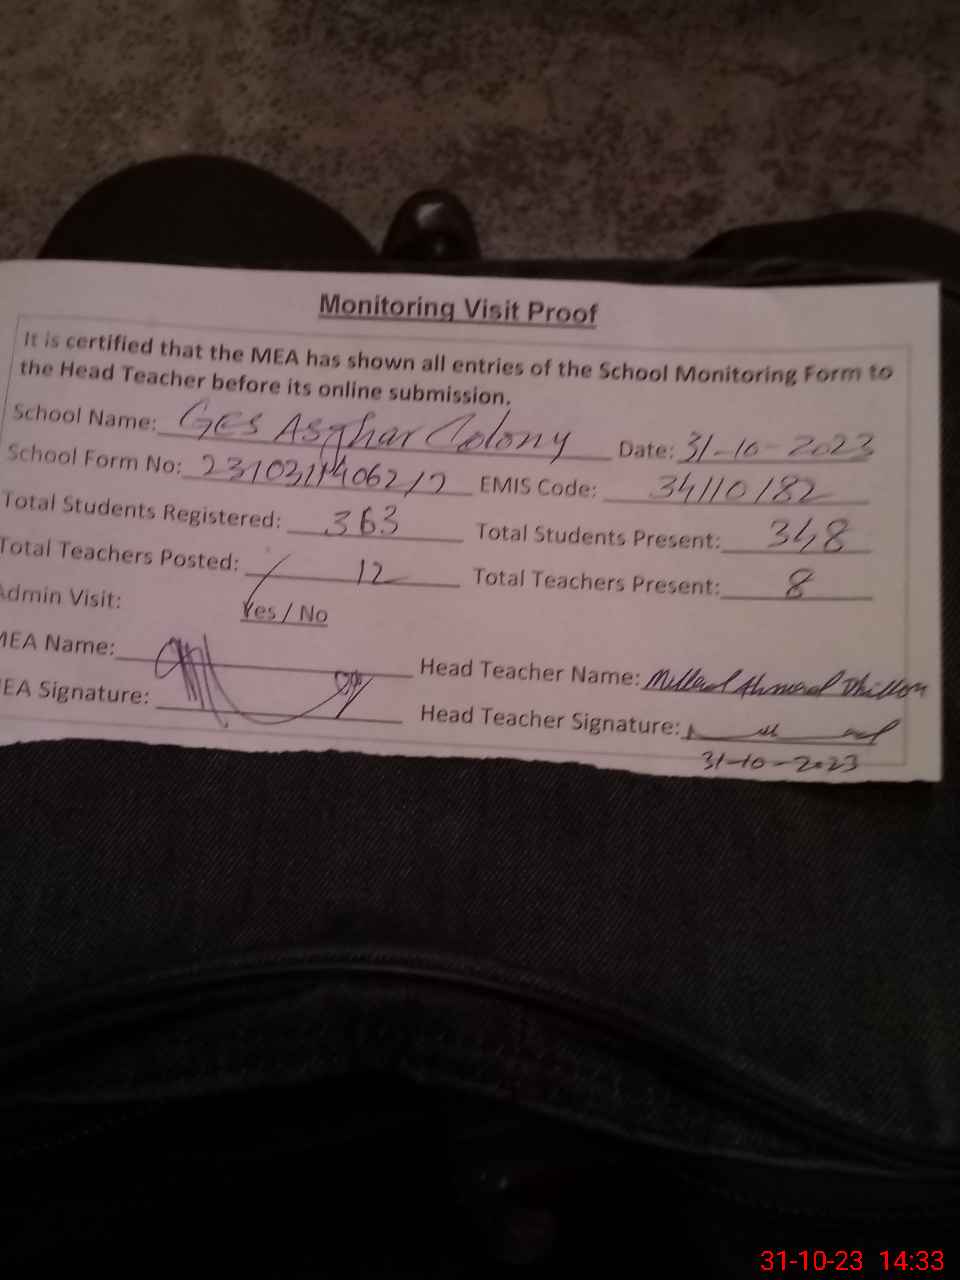 Monitoring Visit Proof
It is certified that the MEA has shown all entries of the School Monitoring Form to
the Head Teacher before its online submission.
School Name: GES Asghar Colony Date: 31-10-2023
School Form No: EMIS Code: 34110182
Total Students Registered: 363 Total Students Present: 348
Total Teachers Posted: 12 Total Teachers Present: 8
Admin Visit: Yes / No
MEA Name: Head Teacher Name: Ahmad Dhillon
MEA Signature: Head Teacher Signature:
31-10-2023
31-10-23 14:33